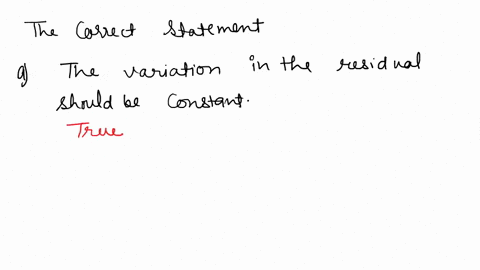 The Correct Statement
a) The variation in the residual
should be Constant.
True